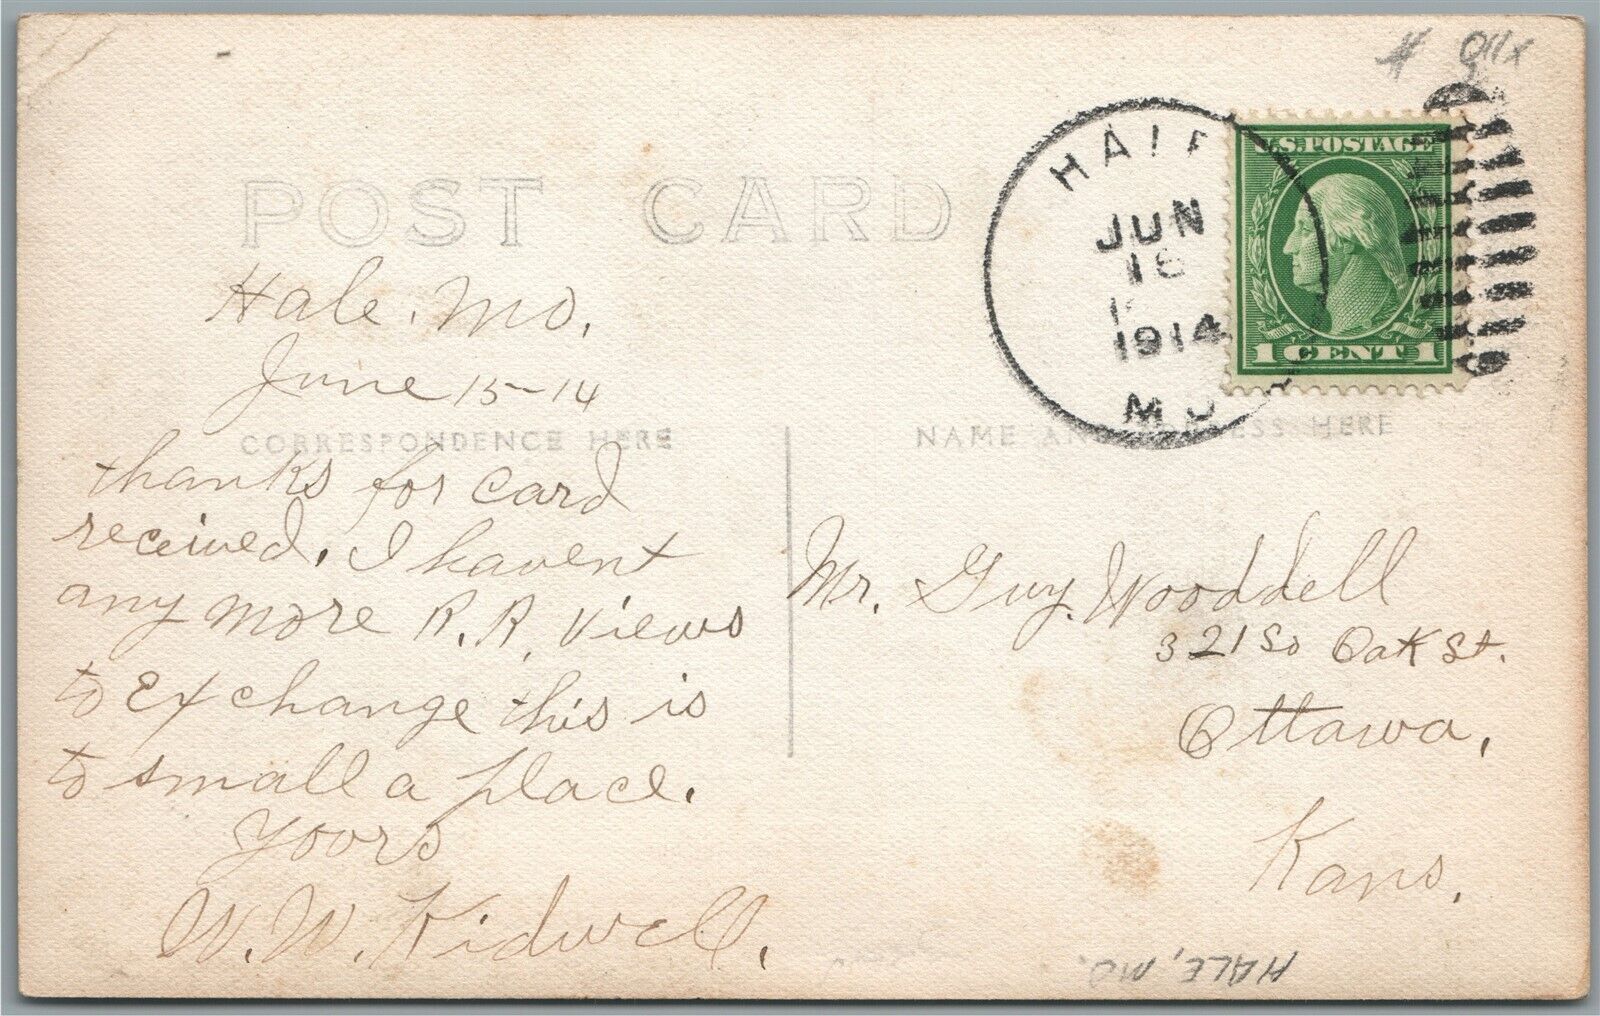 POST CARD
Hale, Mo.
June 15-14
CORRESPONDENCE HERE
thanks for card
received. I havent
any more R.R. Views
to Exchange this is
to small a place.
Yours
W. W. Kidwell.
HALE
JUN
16
1914
MO
U.S. POSTAGE
1 CENT 1
NAME AND ADDRESS HERE
Mr. Guy. Wooddell
321 So Oak St.
Ottawa,
Kans.
HALE, MO.